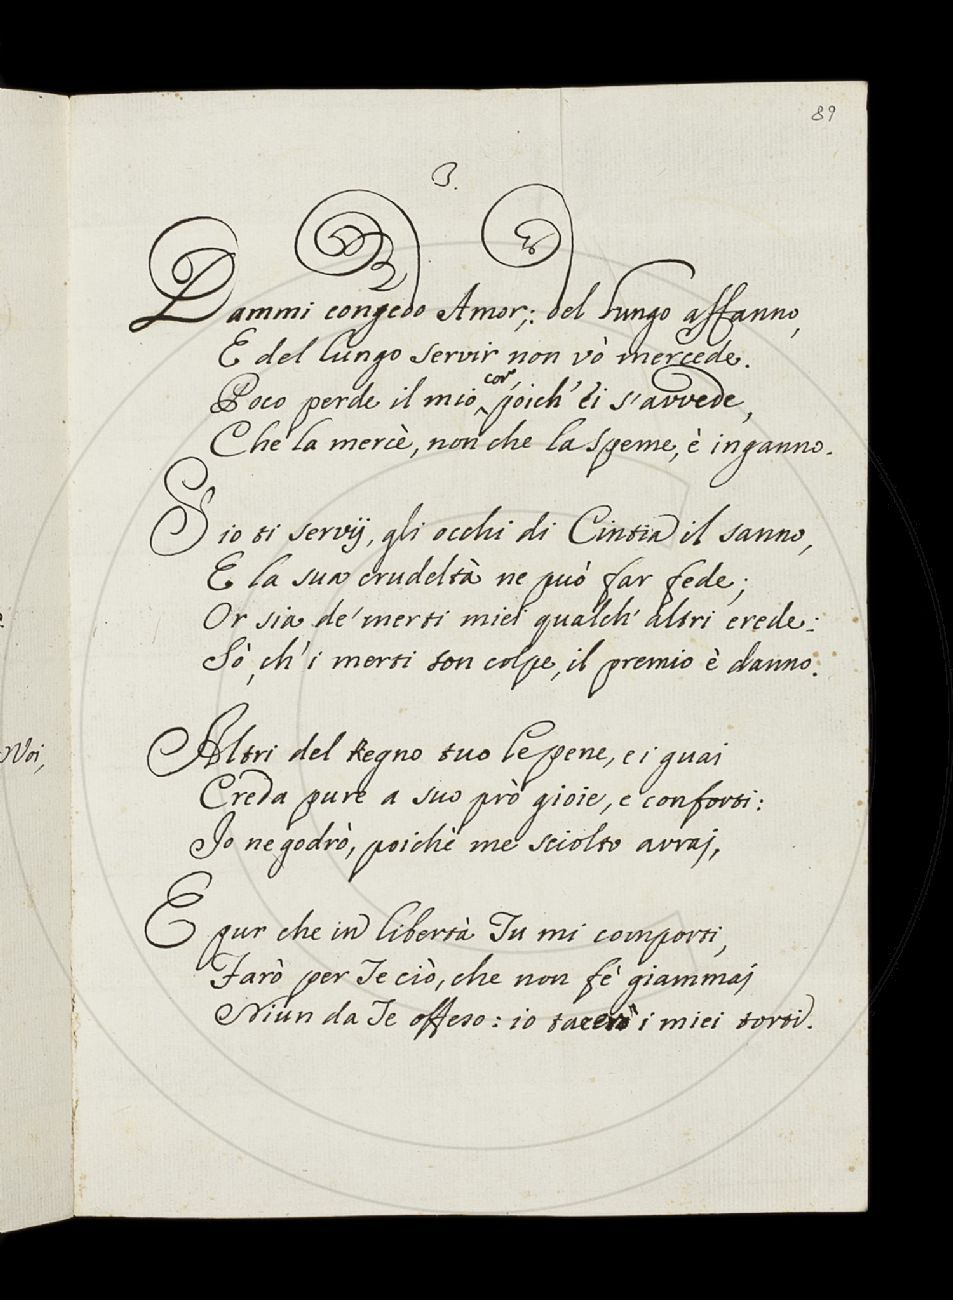 89
3.
Dammi congedo Amor,: del lungo affanno,
E del lungo servir non vò mercede.
Poco perde il mio cor, poich' ei s'avvede,
Che la mercè, non che la speme, è inganno.
S' io ti servij, gli occhi di Cintia il sanno,
E la sua crudeltà ne può far fede;
Or sia de' merti miei qualch' altri erede:
Sò, ch' i merti son colpe, il premio è danno.
Altri del Regno tuo le pene, e i guai
Creda pure a suo prò gioie, e conforti:
Io ne godrò, poichè me sciolto avraj,
E pur che in libertà Tu mi comporti,
Farò per Te ciò, che non fè giammaj
Niun da Te offeso: io tacerò i miei torti.
Voi,